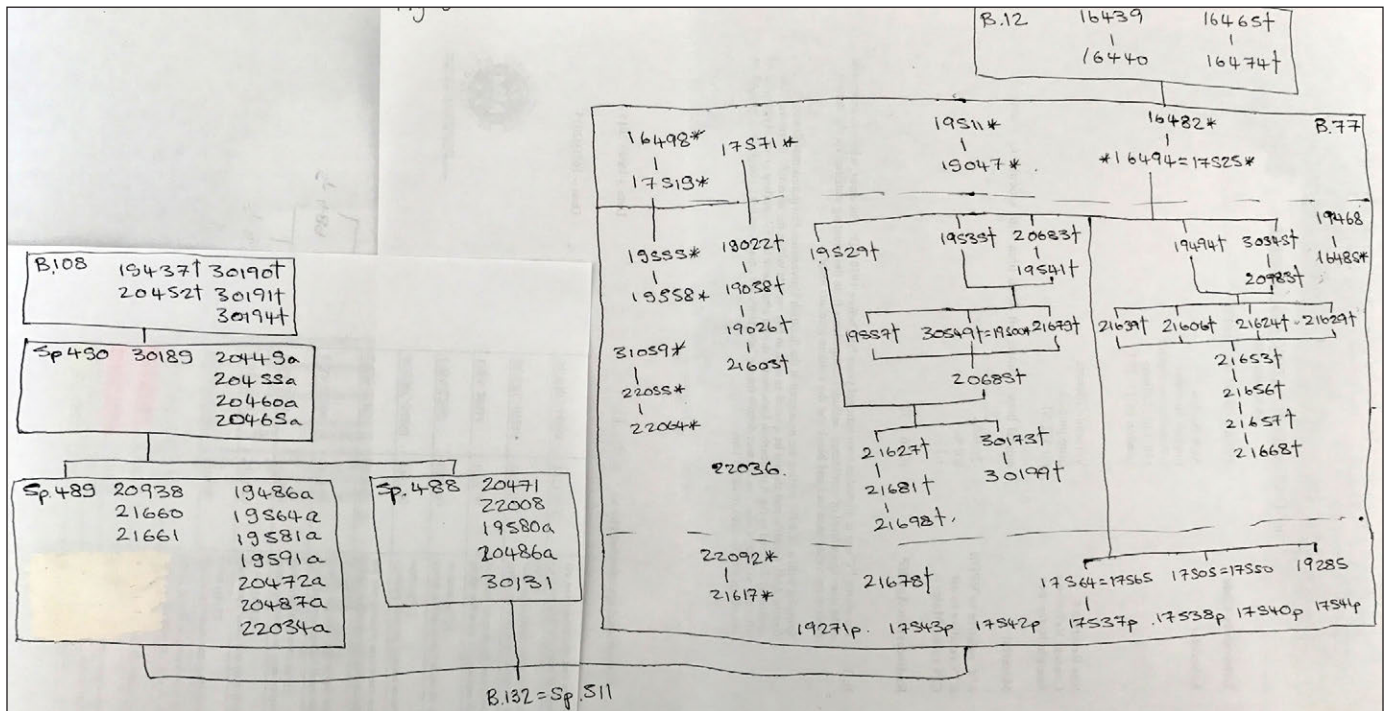 B.12 16439 16465†
16440 16474†
B.77
16498* 17571* 19511* 16482*
17519* 19047* *16494=17525*
19468
16485*
19529† 19535† 20683† 19494† 30345†
19553* 19022† 19541† 20983†
19558* 19038†
19026†
21603†
19557† 30549†=19500* 21679† 21639† 21606† 21624† 21629†
31059* 20685† 21653†
22055* 21656†
22064* 21657†
21668†
21627† 30173†
21681† 30199†
21698†
22036.
22092* 21678† 17564=17565 17505=17550 19285
21617*
19271p. 17543p 17542p 17537p .17538p 17540p 17541p
B.108 19437† 30190†
20452† 30191†
30194†
Sp 490 30189 20449a
20455a
20460a
20465a
Sp.489 20938 19486a
21660 19564a
21661 19581a
19591a
20472a
20487a
22034a
Sp.488 20471
22008
19580a
20486a
30131
B.132=Sp.511